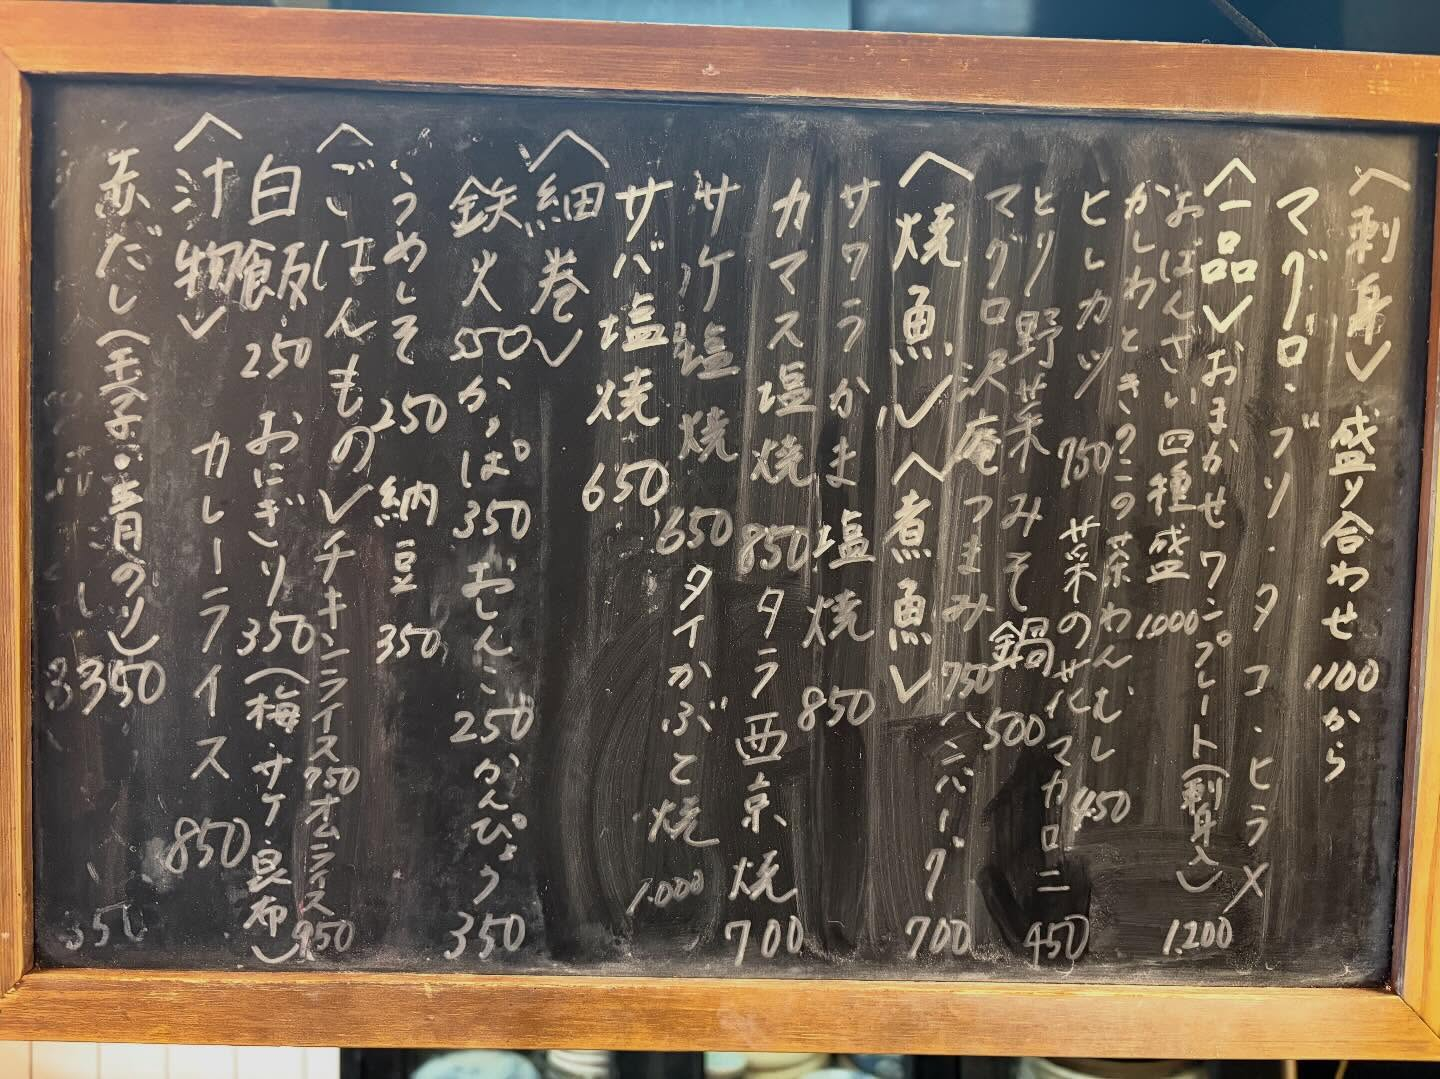 〈刺身〉 盛り合わせ 1100から
マグロ、ブリ、タコ、ヒラメ
〈一品〉おまかせワンプレート(刺身入) 1.200
おばんざい四種盛 1.000
かしわときのこの茶わんむし 450
ヒレカツ 750 菜の花マカロニ 450
とり野菜みそ鍋 500
マグロ沢庵つまみ 750 ハンバーグ 700
〈焼魚〉〈煮魚〉
サワラかま塩焼 850
カマス塩焼 850 タラ西京焼 700
サケ塩焼 650 タイかぶと焼 1.000
サバ塩焼 650
〈細巻〉
鉄火 550 かっぱ 350 おしんこ 250 かんぴょう 350
うめしそ 250 納豆 350
〈ごはんもの〉チキンライス 750 オムライス 950
白飯 250 おにぎり 350(梅・サケ・昆布)
〈汁物〉 カレーライス 850
赤だし(玉子・青のり) 350